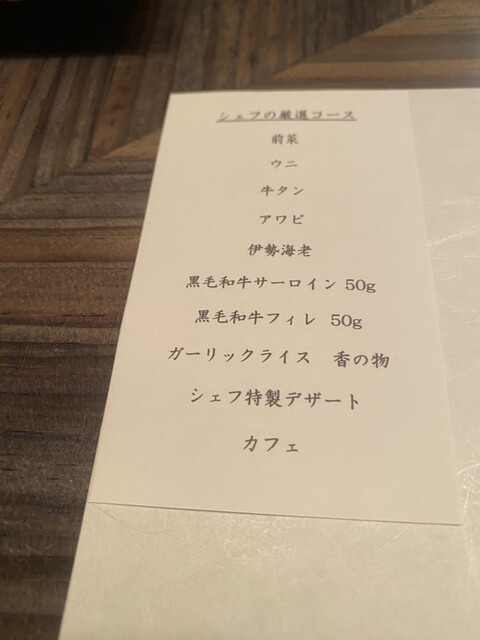 シェフの厳選コース
前菜
ウニ
牛タン
アワビ
伊勢海老
黒毛和牛サーロイン 50g
黒毛和牛フィレ 50g
ガーリックライス　香の物
シェフ特製デザート
カフェ